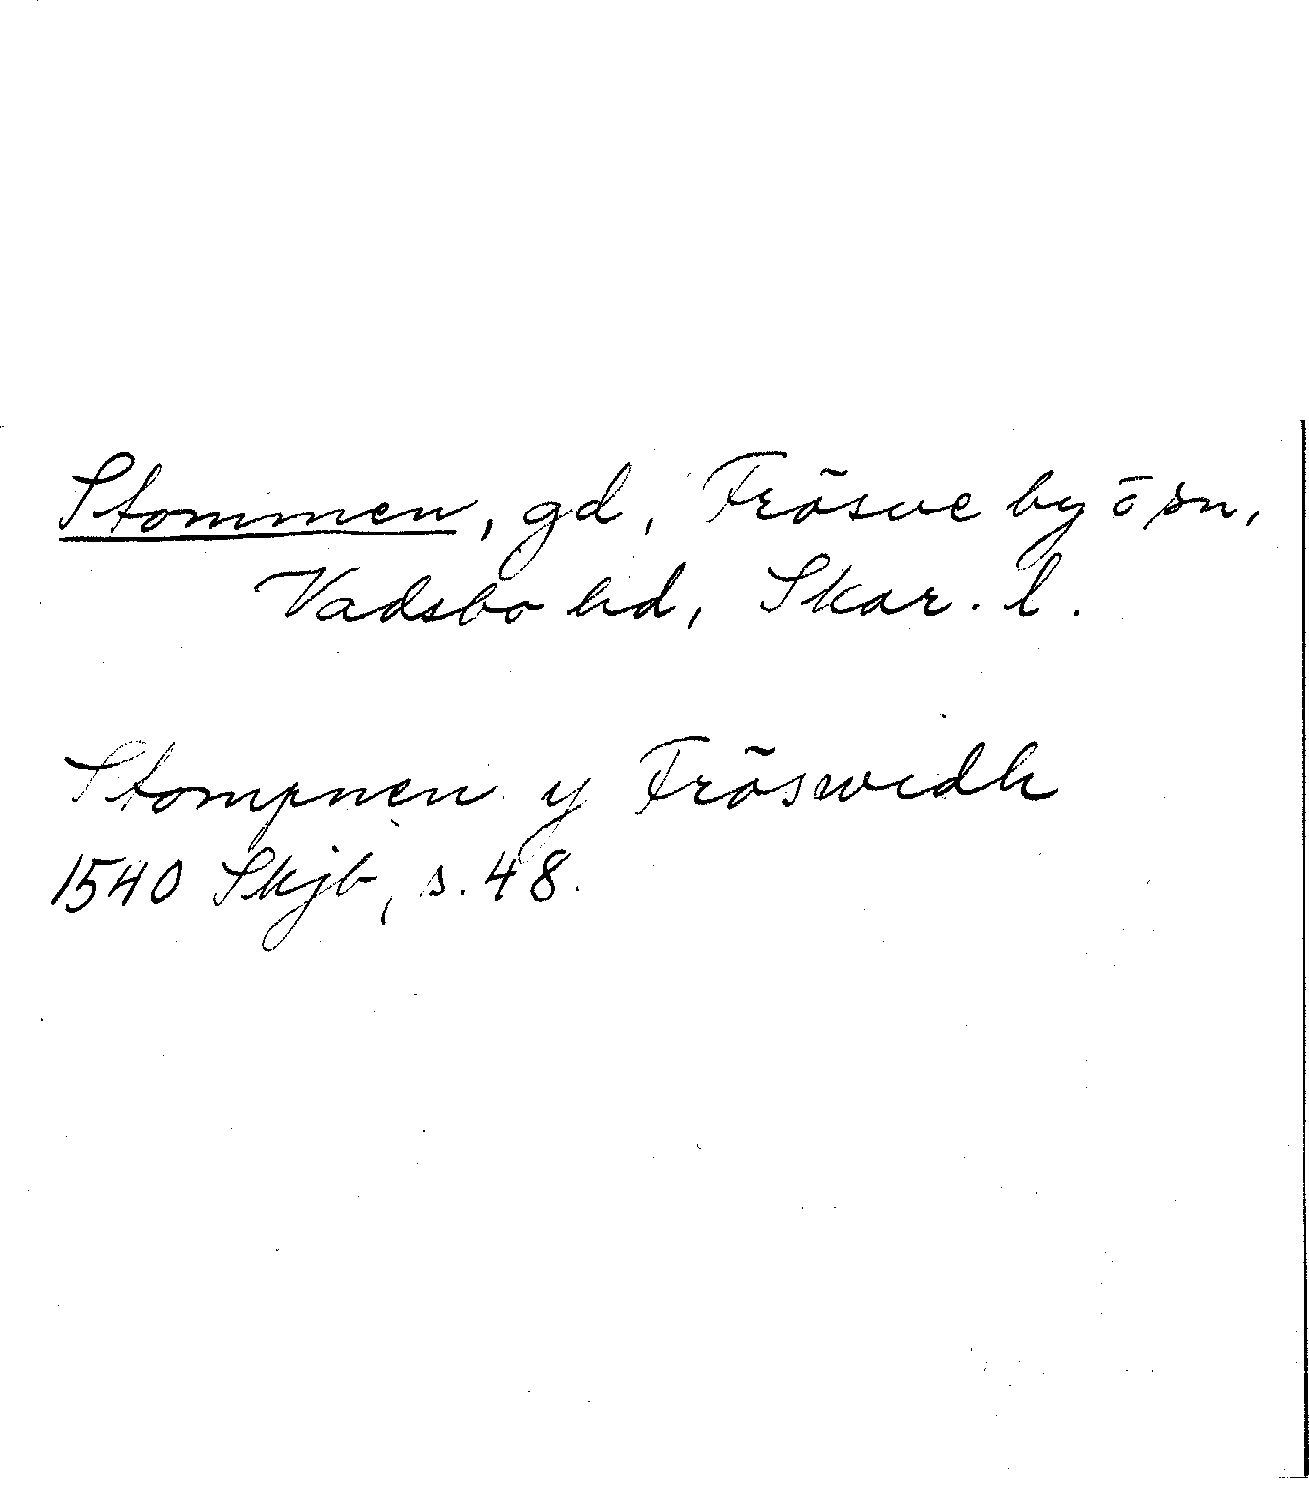 Stommen, gd, Frösve by o sn,
Vadsbo hd, Skar. l.
Stompnen y Fröswedh
1540 Skjb, s. 48.